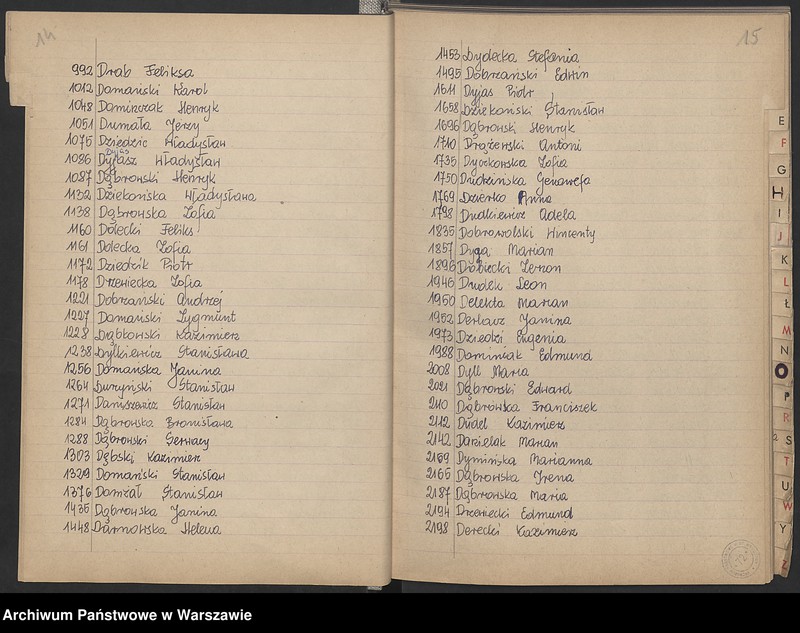 14
992 Drab Feliksa
1012 Domański Karol
1048 Dominczak Henryk
1051 Dumała Jerzy
1075 Dziedzic Władysław
1086 Władysław
1087 Dąbrowski Henryk
1132 Dziekońska Władysława
1138 Dąbrowska Zofia
1160 Dolecki Feliks
1161 Dolecka Zofia
1172 Dziedzik Piotr
1178 Drzewiecka Zofia
1221 Dobrzański Andrzej
1227 Domański Zygmunt
1228 Dąbkowski Kazimierz
1238 Dylkiewicz Stanisława
1256 Domańska Janina
1264 Duszyński Stanisław
1271 Danuszewicz Stanisław
1284 Dąbrowska Bronisława
1288 Dąbrowski Gerwazy
1303 Dębski Kazimierz
1329 Domański Stanisław
1376 Domżał Stanisław
1435 Dąbrowska Janina
1448 Darnowska Helena
15
1453 Dydecka Stefania
1495 Dobrzański Edwin
1611 Dyjas Piotr
1658 Dziekoński Stanisław
1696 Dąbrowski Henryk
1710 Drążewski Antoni
1735 Dyczkowska Zofia
1750 Drudzińska Genowefa
1769 Dzierko Anna
1798 Dudkiewicz Adela
1835 Dobrowolski Wincenty
1857 Dyga Marian
1896 Drabiecki Zenon
1946 Dudek Leon
1950 Delekta Marian
1952 Derlacz Janina
1973 Dziedzi Eugenia
1988 Dominiak Edmund
2008 Dyll Maria
2021 Dąbrowski Edward
2110 Dąbrowska Franciszek
2112 Dudel Kazimierz
2142 Danielak Marian
2159 Dymińska Marianna
2165 Dąbrowska Irena
2187 Dąbrowska Maria
2194 Drzewiecki Edmund
2198 Derecki Kazimierz
E
F
G
H
I
J
K
L
Ł
M
N
O
P
R
S
T
U
W
Y
Z
Archiwum Państwowe w Warszawie